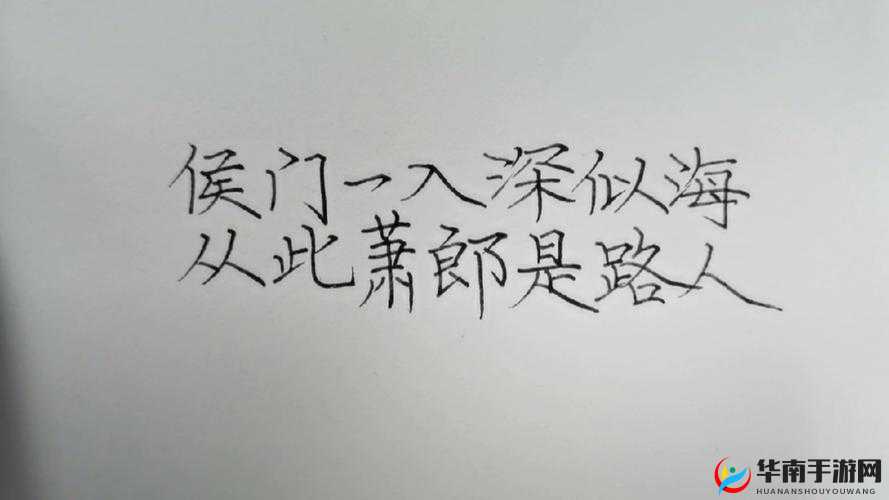 侯门一入深似海
从此萧郎是路人
华南手游网
HUANANSHOUYOUWANG